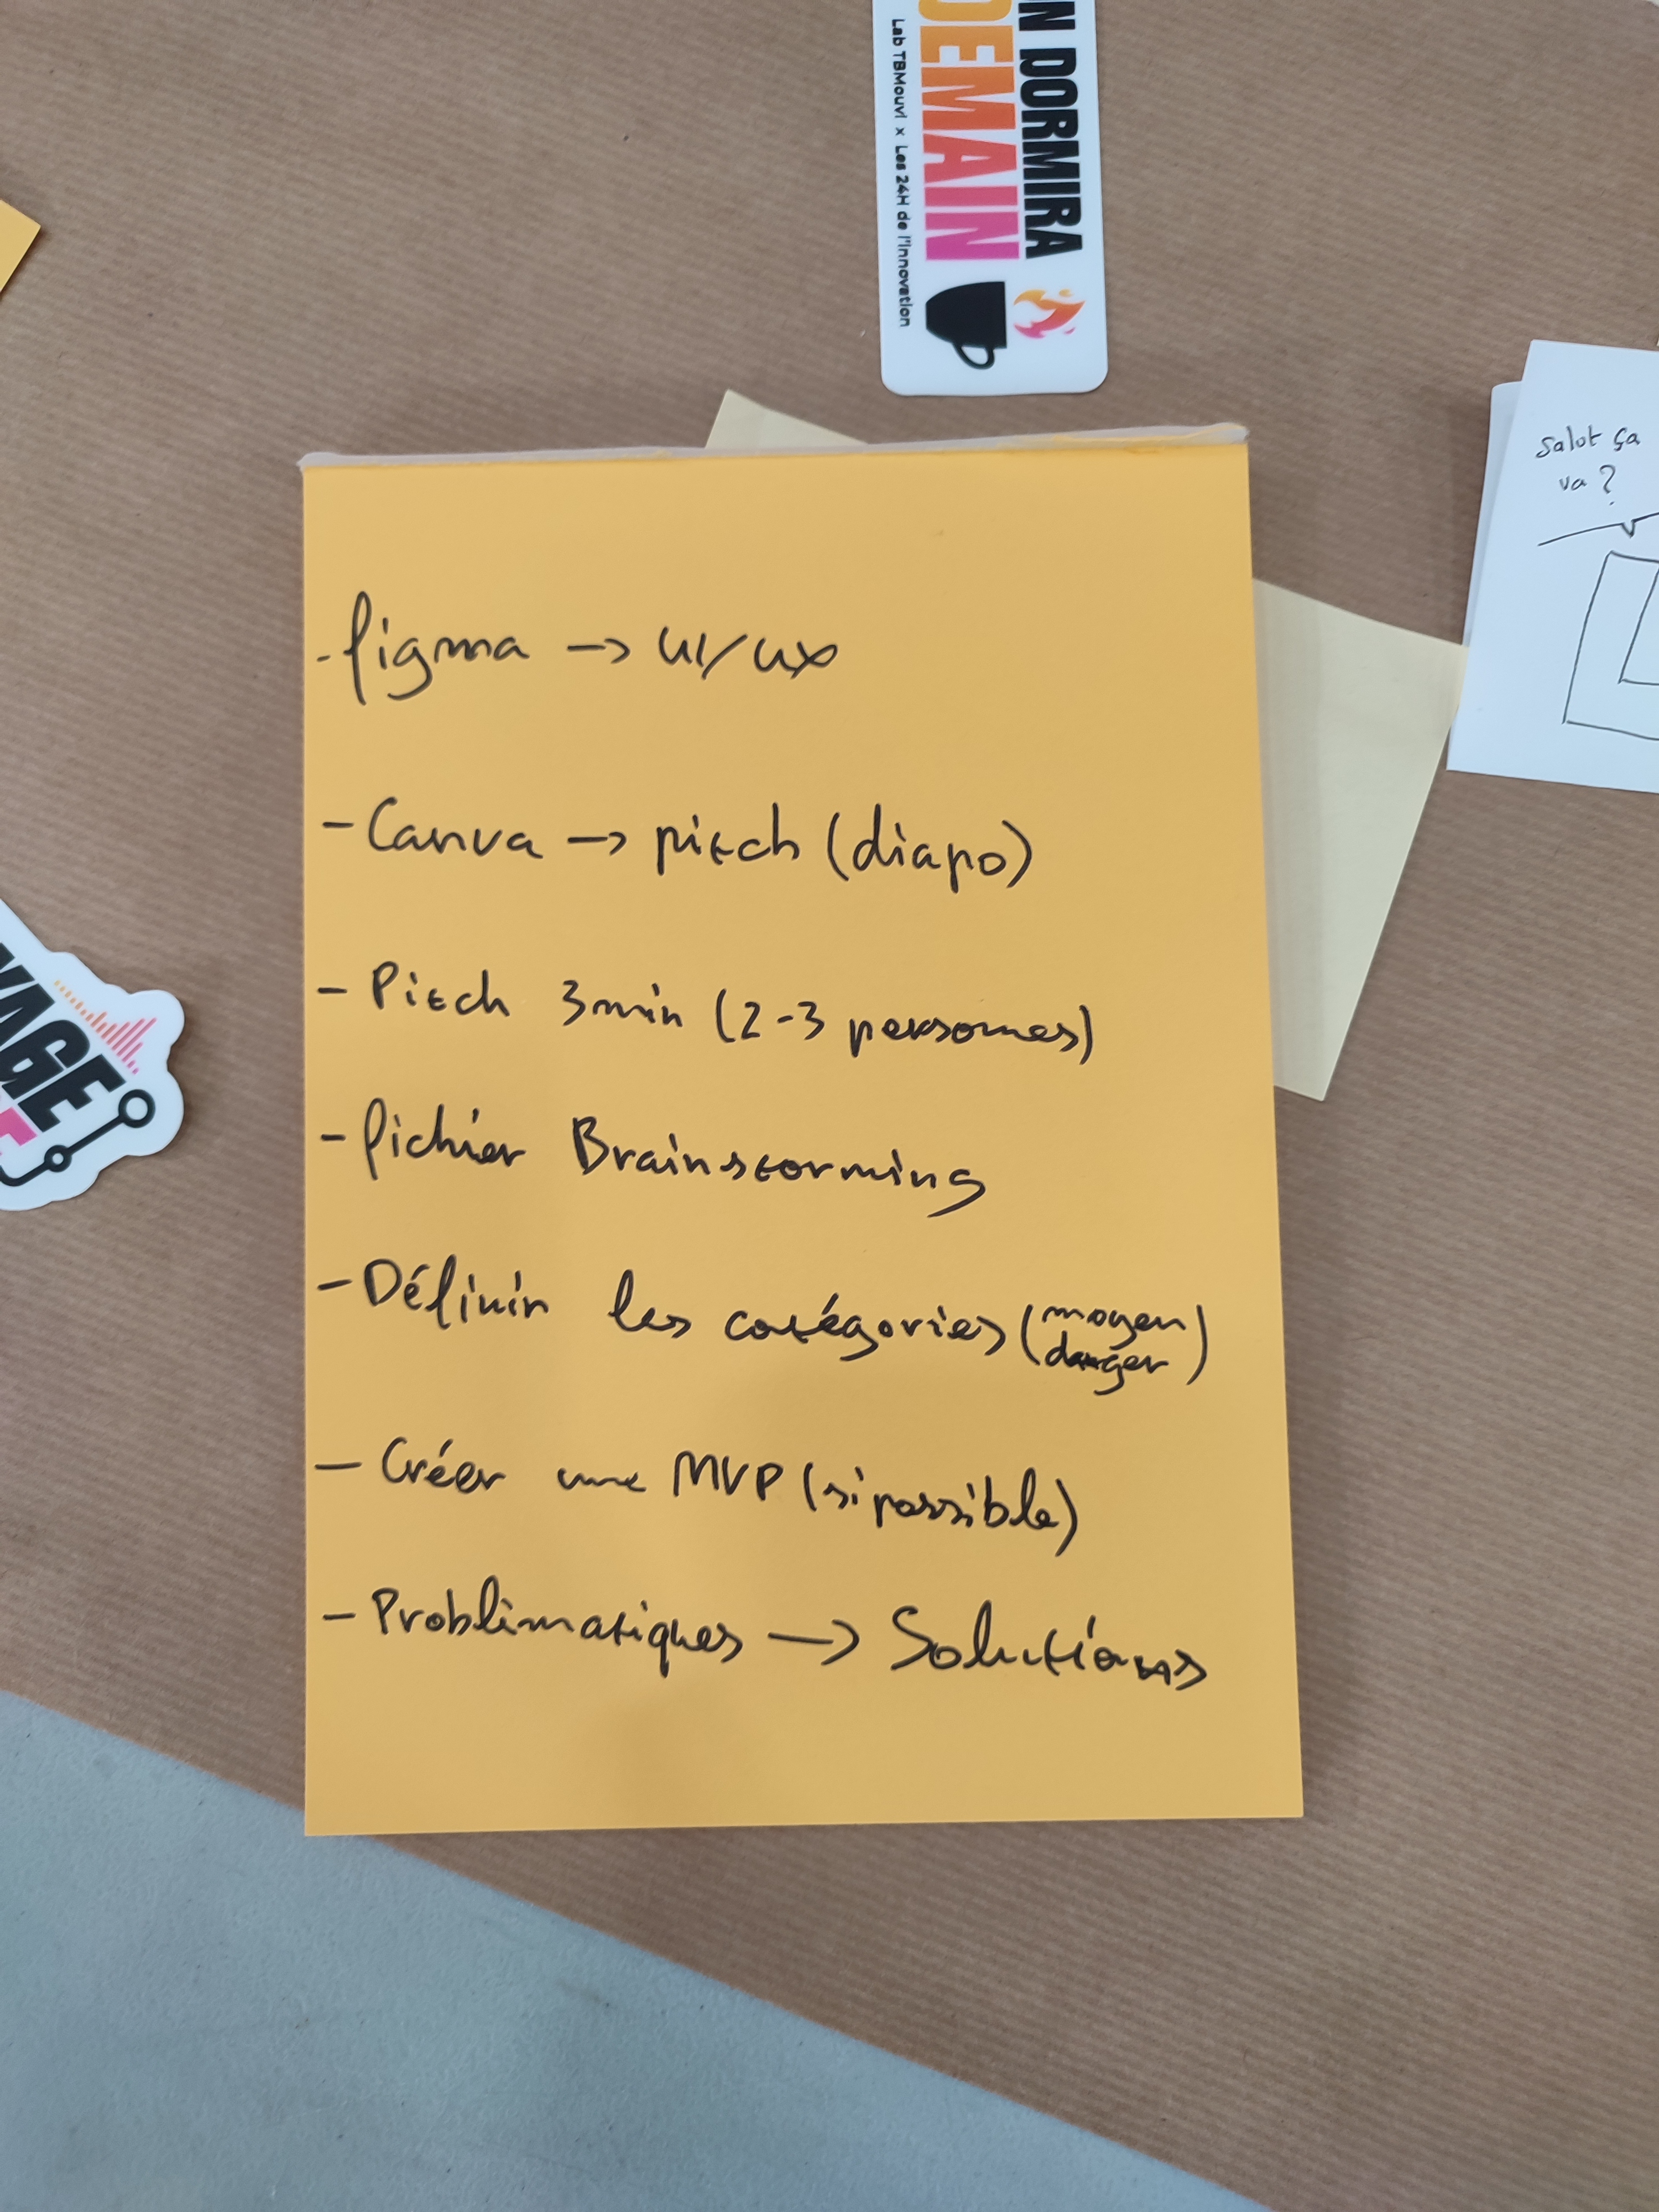 ON DORMIRA
DEMAIN
Lab TBMouvl x Les 24H de l'innovation
Salut ça
va ?
- figma -> UI/UX
- Canva -> pitch (diapo)
- Pitch 3min (2-3 personnes)
- fichier Brainstorming
- Définir les catégories (moyen
danger)
- Créer une MVP (si possible)
- Problématiques -> Solutions